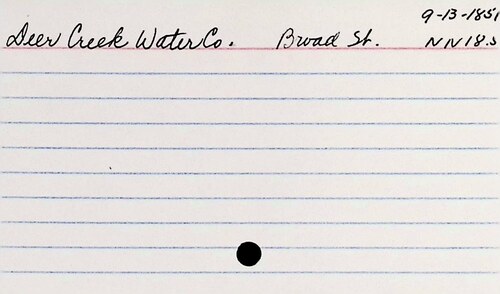 9-13-1851
Deer Creek Water Co. Broad St. NN18.5